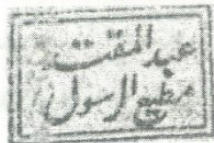 عبد المقتدر
مطيع الرسول